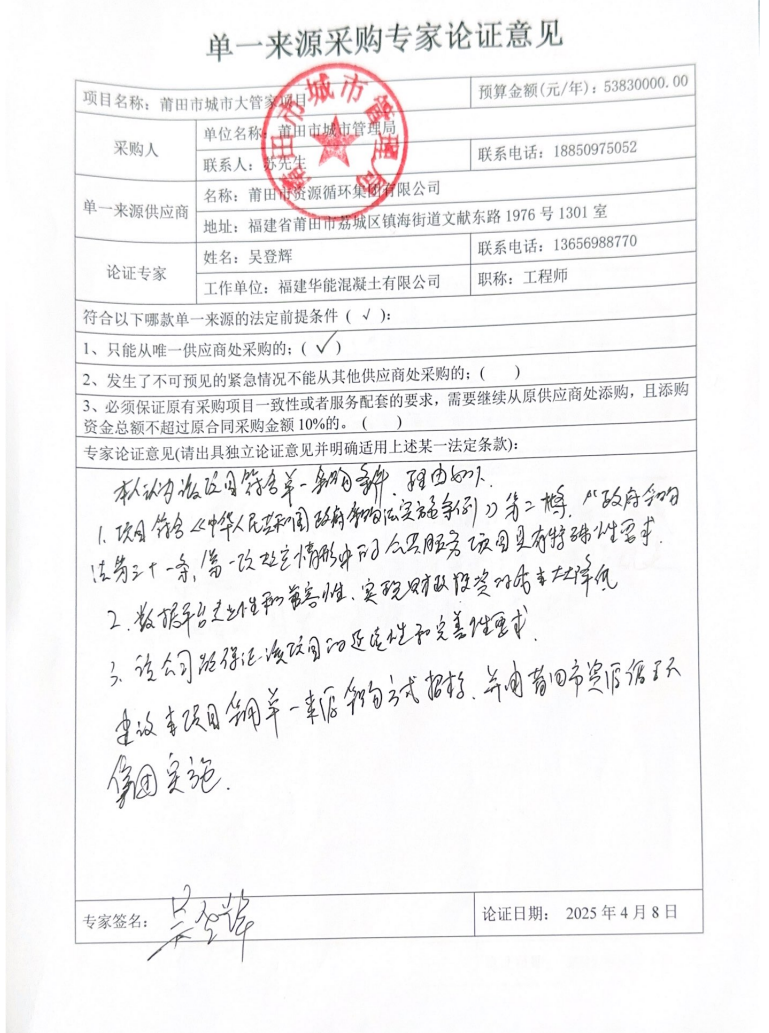 单一来源采购专家论证意见
项目名称：莆田市城市大管家项目
预算金额(元/年)：53830000.00
采购人
单位名称：莆田市城市管理局
联系人：苏先生
联系电话：18850975052
单一来源供应商
名称：莆田市资源循环集团有限公司
地址：福建省莆田市荔城区镇海街道文献东路 1976 号 1301 室
论证专家
姓名：吴登辉
联系电话：13656988770
工作单位：福建华能混凝土有限公司
职称：工程师
符合以下哪款单一来源的法定前提条件（√）：
1、只能从唯一供应商处采购的；(√)
2、发生了不可预见的紧急情况不能从其他供应商处采购的；( )
3、必须保证原有采购项目一致性或者服务配套的要求，需要继续从原供应商处添购，且添购
资金总额不超过原合同采购金额 10%的。( )
专家论证意见(请出具独立论证意见并明确适用上述某一法定条款)：
本人认为该项目符合单一采购条件，理由如下
1、项目符合《中华人民共和国政府采购法实施条例》第二 政府采购
法第三十一条，第一 规定情形中的公共服务项目具有特殊性要求．
2、数据平台 性和兼容性、实现财政投资的成本大降低
3、该公司能保证该项目的延续性和完善性要求．
建议本项目采用单一来源采购方式招标、并由莆田市资源循环
集团实施．
专家签名：
吴登辉
论证日期： 2025 年 4 月 8 日
莆田市城市管理局